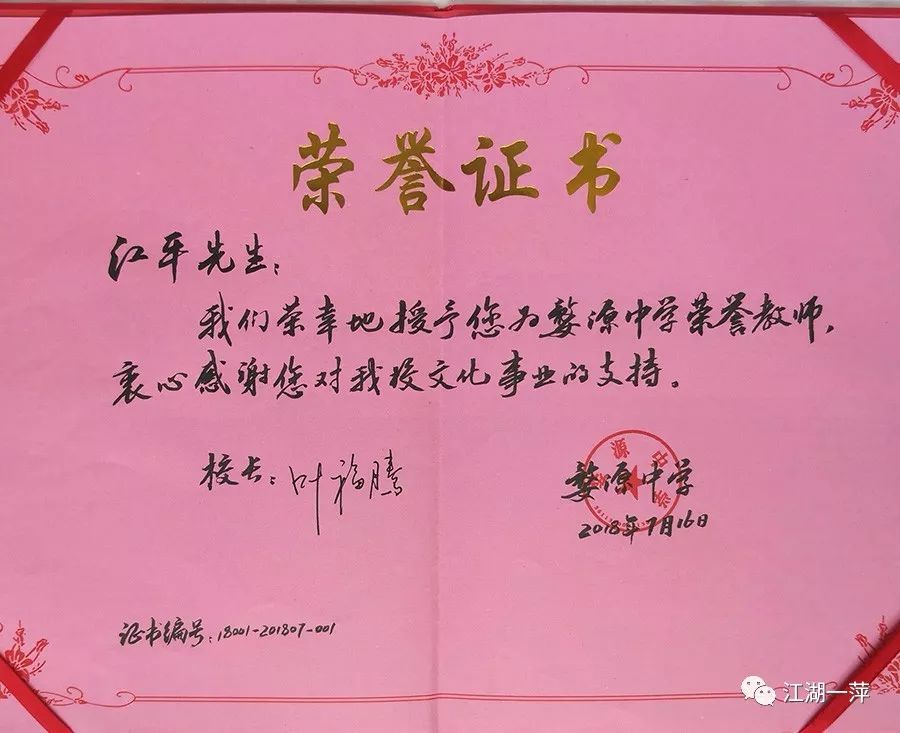 荣誉证书
江平先生：
我们荣幸地授予您为婺源中学荣誉教师，
衷心感谢您对我校文化事业的支持。
校长：叶福腾
婺源中学
2018年7月16日
证书编号：18001-201807-001
江湖一萍